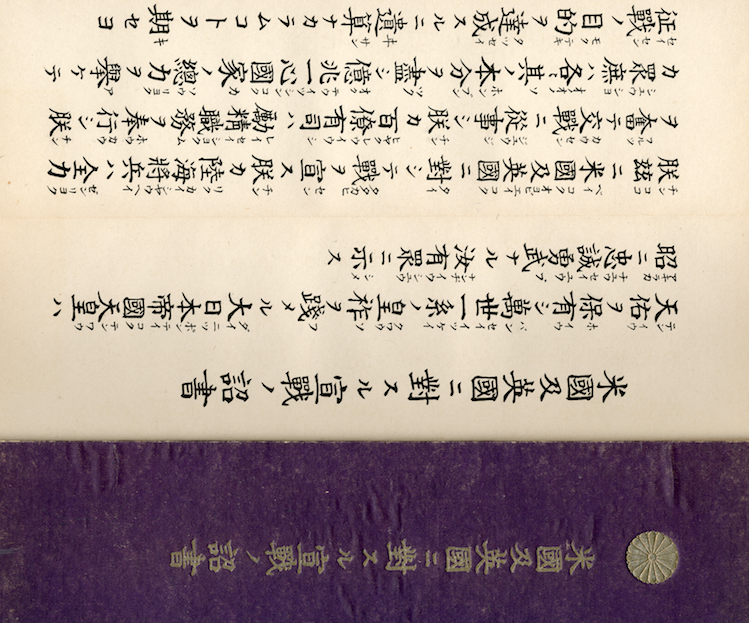 米國及英國ニ對スル宣戰ノ詔書
米國及英國ニ對スル宣戰ノ詔書
天佑ヲ保有シ萬世一系ノ皇祚ヲ踐メル大日本帝國天皇ハ
昭ニ忠誠勇武ナル汝有眾ニ示ス
朕茲ニ米國及英國ニ對シテ戰ヲ宣ス朕カ陸海將兵ハ全力
ヲ奮テ交戰ニ從事シ朕カ百僚有司ハ勵精職務ヲ奉行シ朕
カ眾庶ハ各〻其ノ本分ヲ盡シ億兆一心國家ノ總力ヲ擧ケテ
征戰ノ目的ヲ達成スルニ遺算ナカラムコトヲ期セヨ